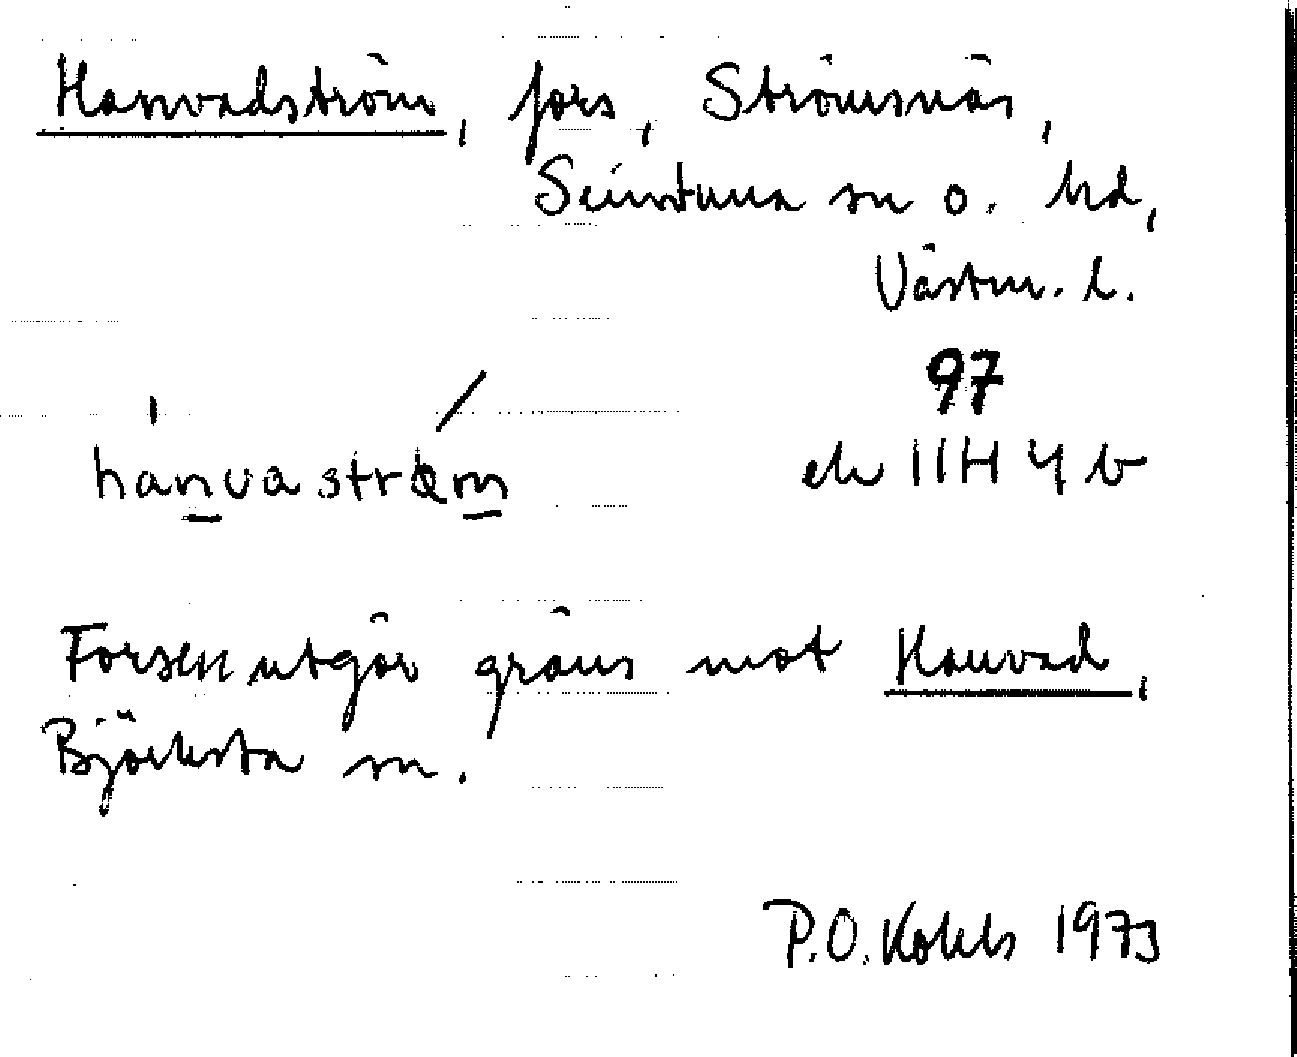 Hanvadström, fors, Strömsnäs,
Simtuna sn o. hd,
Västm. l.
97
ek 11H 4 b
hanvaström
Forsen utgör gräns mot Hanvad,
Björksta sn.
P.O. Kohls 1973